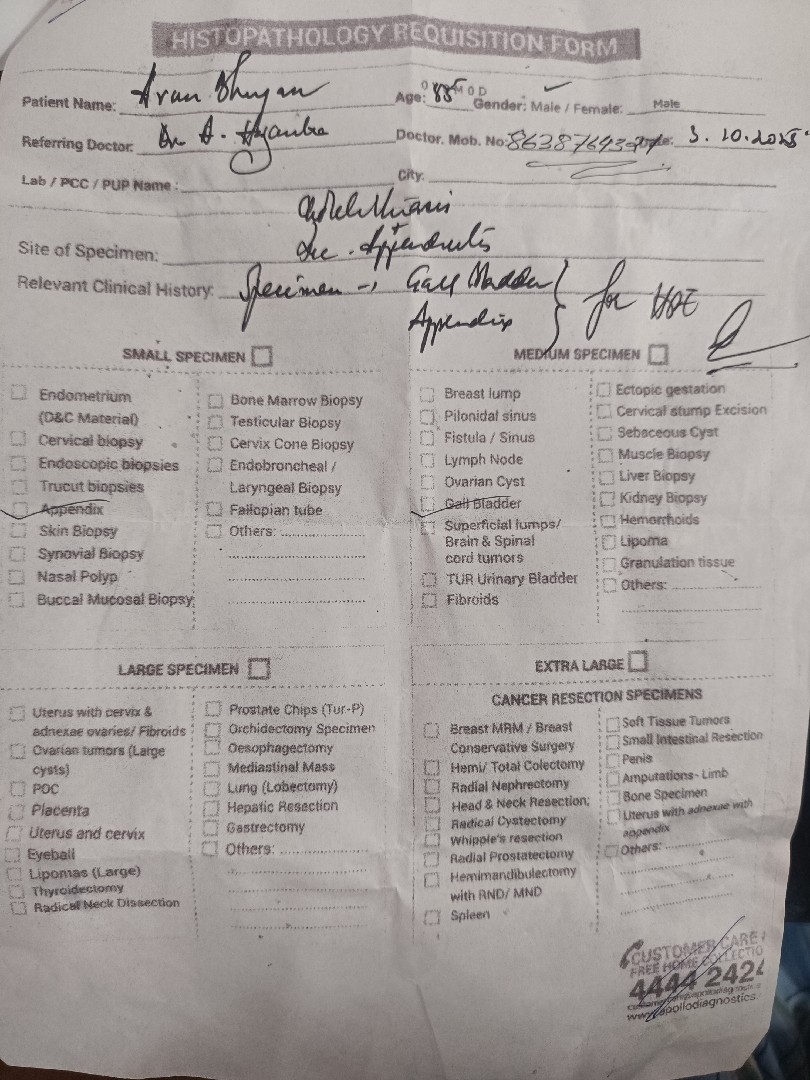 HISTOPATHOLOGY REQUISITION FORM
Patient Name: Arun Bhuyan Age: 85 Gender: Male / Female: Male
Referring Doctor: Dr. A. Doctor. Mob. No: 3.10.2025
Lab / PCC / PUP Name : City:
Cholelithiasis
Site of Specimen: Appendicitis
Relevant Clinical History: Specimen → Gall Bladder } for HPE
Appendix
SMALL SPECIMEN
Endometrium
(D&C Material)
Cervical biopsy
Endoscopic biopsies
Trucut biopsies
Appendix
Skin Biopsy
Synovial Biopsy
Nasal Polyp
Buccal Mucosal Biopsy
Bone Marrow Biopsy
Testicular Biopsy
Cervix Cone Biopsy
Endobroncheal /
Laryngeal Biopsy
Fallopian tube
Others:
MEDIUM SPECIMEN
Breast lump
Pilonidal sinus
Fistula / Sinus
Lymph Node
Ovarian Cyst
Gall Bladder
Superficial lumps/
Brain & Spinal
cord tumors
TUR Urinary Bladder
Fibroids
Ectopic gestation
Cervical stump Excision
Sebaceous Cyst
Muscle Biopsy
Liver Biopsy
Kidney Biopsy
Hemorrhoids
Lipoma
Granulation tissue
Others:
LARGE SPECIMEN
Uterus with cervix &
adnexae ovaries/ Fibroids
Ovarian tumors (Large
cysts)
POC
Placenta
Uterus and cervix
Eyeball
Lipomas (Large)
Thyroidectomy
Radical Neck Dissection
Prostate Chips (Tur-P)
Orchidectomy Specimen
Oesophagectomy
Mediastinal Mass
Lung (Lobectomy)
Hepatic Resection
Gastrectomy
Others:
EXTRA LARGE
CANCER RESECTION SPECIMENS
Breast MRM / Breast
Conservative Surgery
Hemi/ Total Colectomy
Radial Nephrectomy
Head & Neck Resection;
Radical Cystectomy
Whipple's resection
Radial Prostatectomy
Hemimandibulectomy
with RND/ MND
Spleen
Soft Tissue Tumors
Small Intestinal Resection
Penis
Amputations- Limb
Bone Specimen
Uterus with adnexae with
appendix
Others:
CUSTOMER CARE
FREE HOME COLLECTIO
4444 242
www.apollodiagnostics.